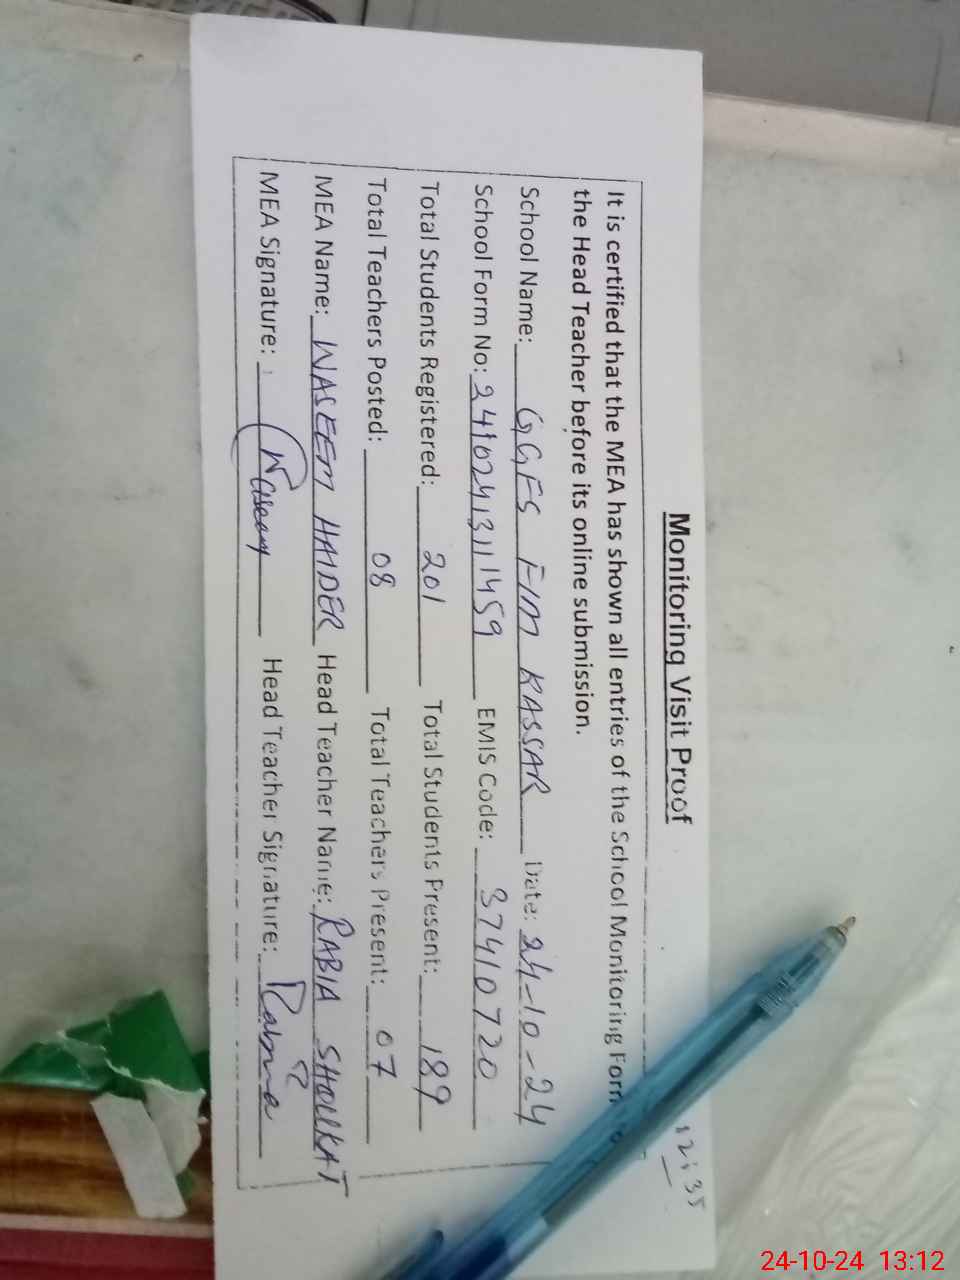 Monitoring Visit Proof
12:35
It is certified that the MEA has shown all entries of the School Monitoring Form
the Head Teacher before its online submission.
School Name: GGES FIM KASSAR Date: 24-10-24
School Form No: 24102413111459 EMIS Code: 37410720
Total Students Registered: 201 Total Students Present: 189
Total Teachers Posted: 08 Total Teachers Present: 07
MEA Name: WASEEM HAIDER Head Teacher Name: RABIA SHOUKAT
MEA Signature: Waseem Head Teacher Signature: Rabia
24-10-24 13:12